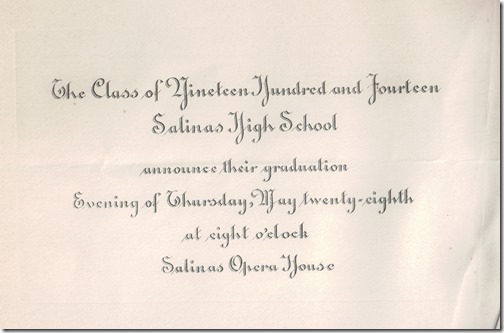 The Class of Nineteen Hundred and Fourteen
Salinas High School
announce their graduation
Evening of Thursday, May twenty-eighth
at eight o'clock
Salinas Opera House